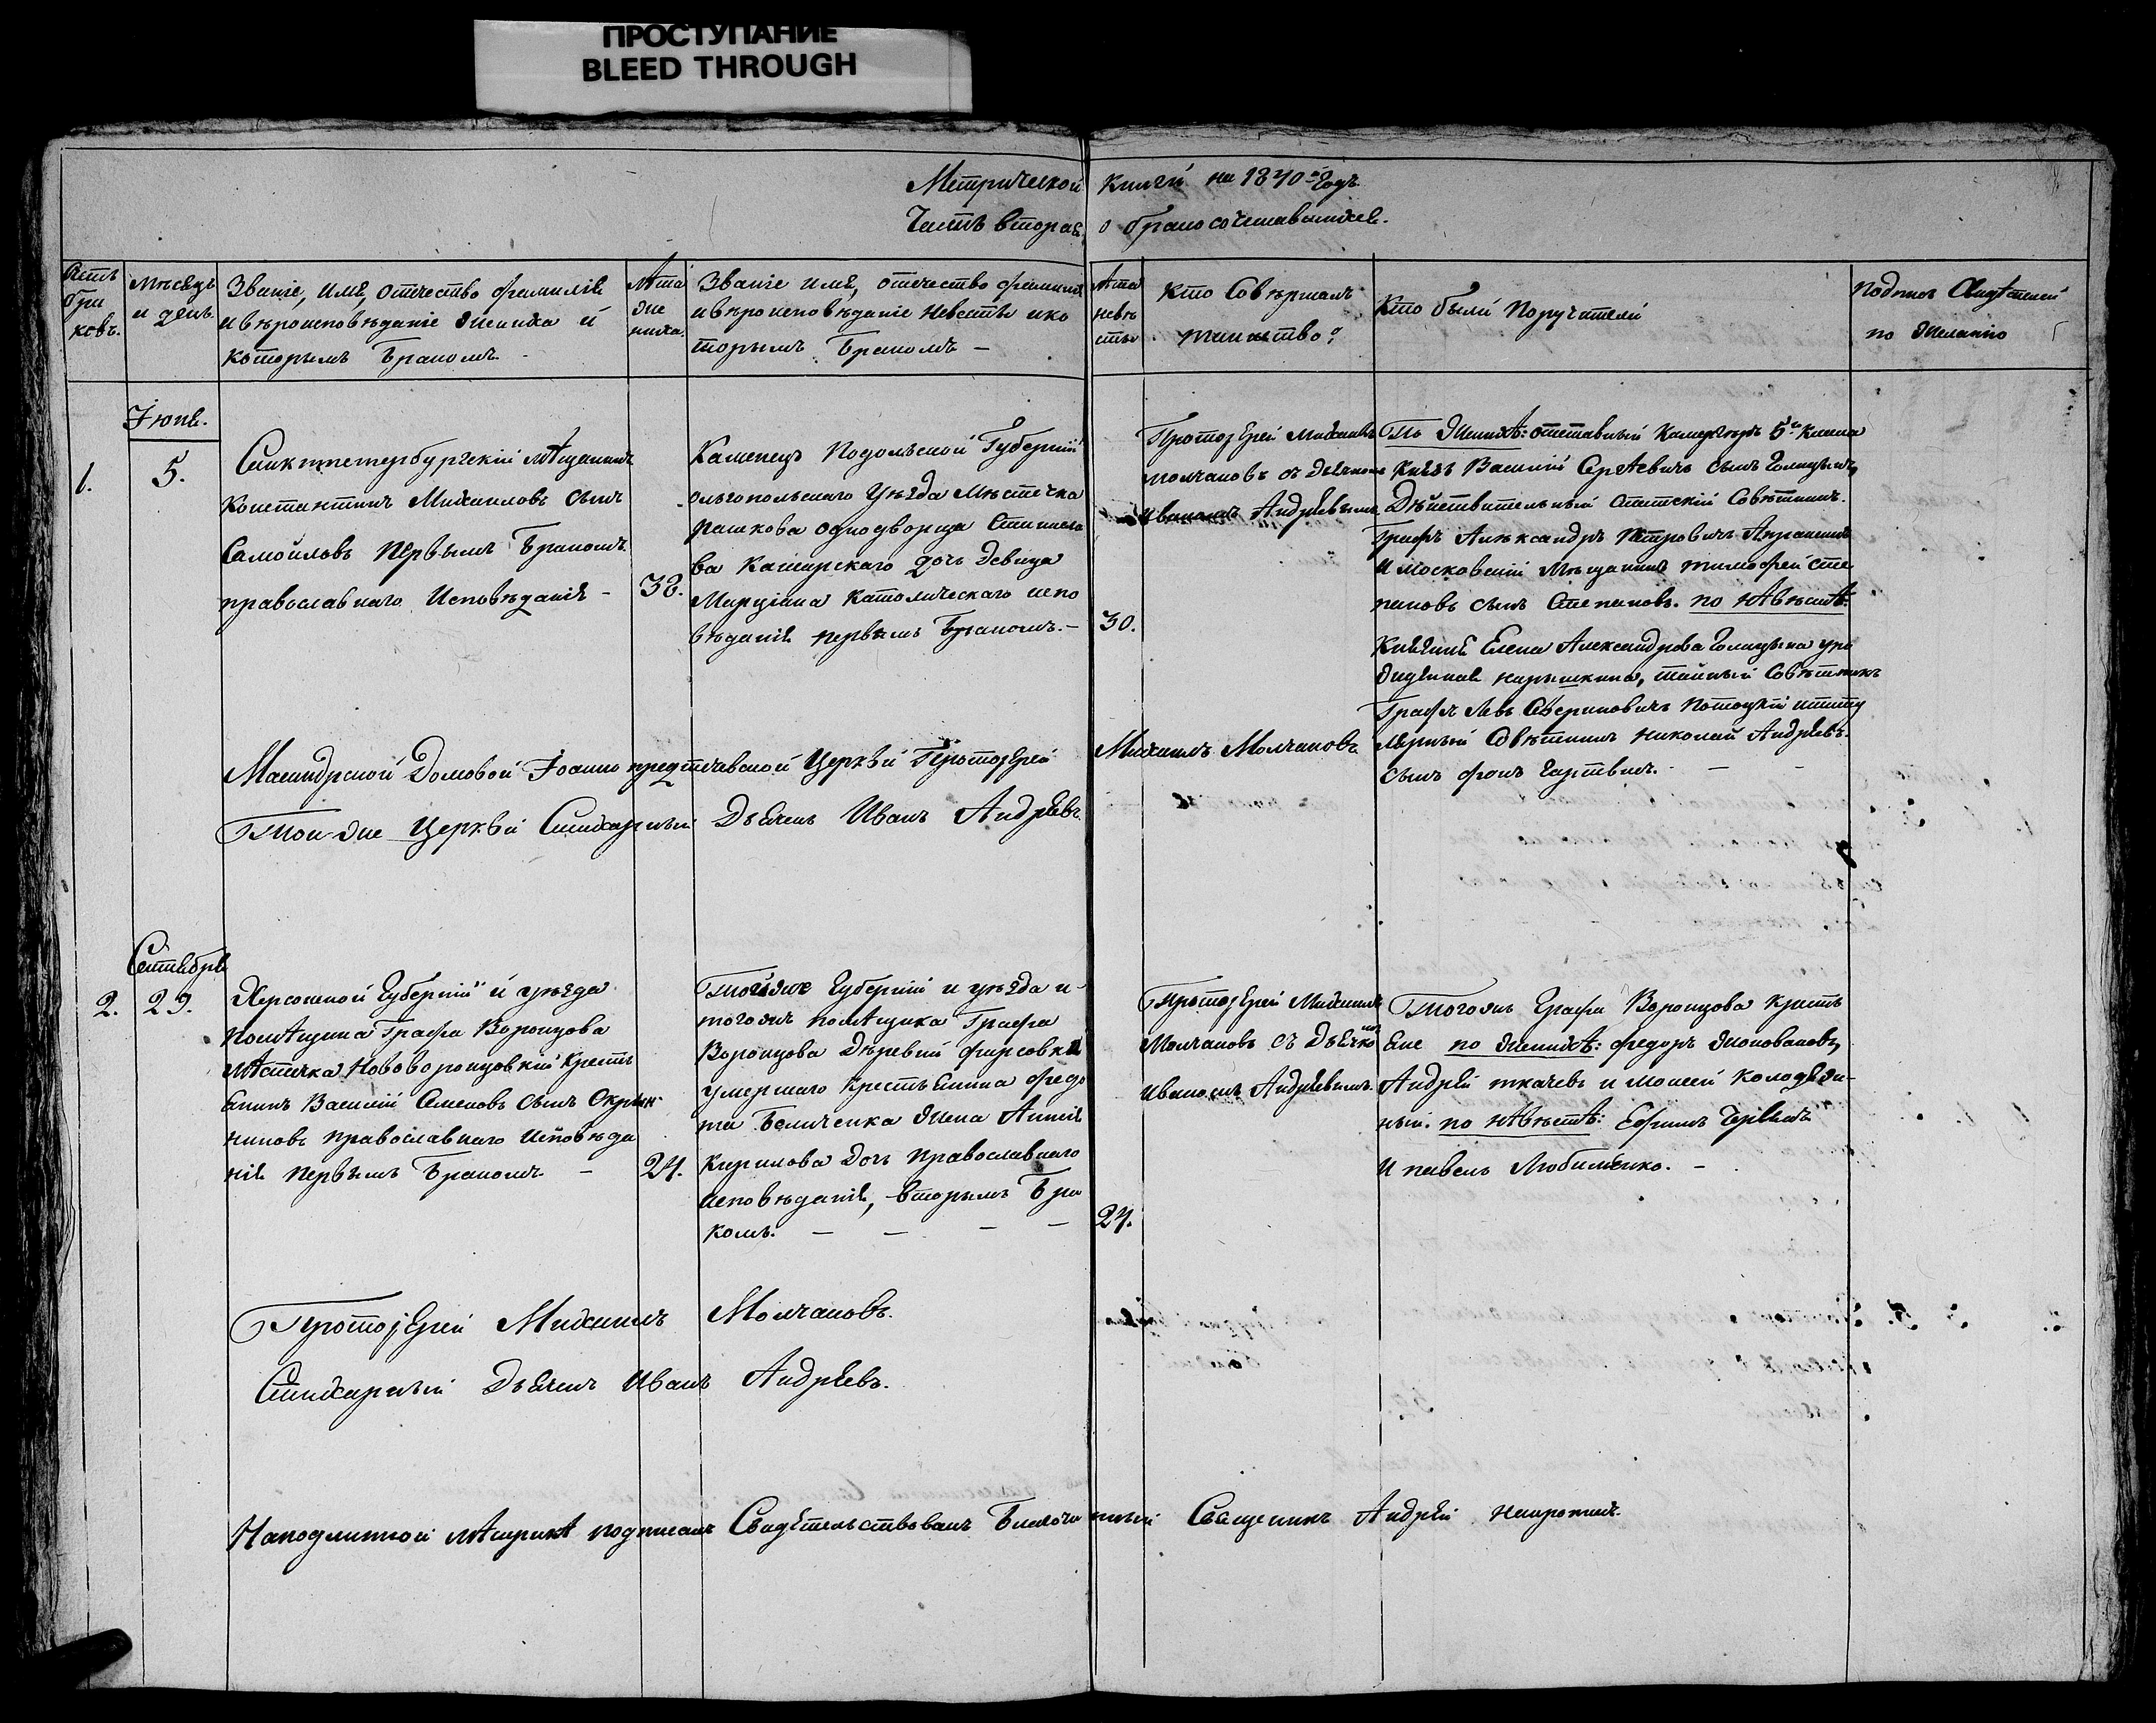 ПРОСТУПАНИЕ
BLEED THROUGH
Метрической книги на 1840й Годъ.
Часть вторая, о бракосочетавшихся.
бра
ковъ.
мѣсяцъ
и день.
Званіе, имя, отечество фамилія
и вѣроисповѣданіе жениха и
которымъ бракомъ.
Лѣта
же
ниха.
Званіе имя, отечество фамилія
и вѣроисповѣданіе невѣсты и ко
торымъ бракомъ —
Лѣта
невѣ
сты
Кто Совѣршалъ
таинство.
Кто были Поручители
по желанію
Іюня.
1.
5.
Санктпетербургскій мѣщанинъ
Константинъ Михаиловъ сынъ
Самойловъ первымъ бракомъ
православнаго Исповѣданія —
38.
Каменецъ Подольской Губерніи
ольгопольскаго уѣзда мѣстечка
рашкова однодворца Станисла
ва Каширскаго дочь девица
Марціана католическаго испо
вѣданія первымъ бракомъ. —
30.
Протоіерей Михаилъ
молчановъ съ дьячкомъ
иваномъ Андрѣевымъ
По женихѣ: отставный Камергеръ 5го класса
Князь Василій Сергѣевичь сынъ Голицынъ,
Дѣйствительный Статскій Совѣтникъ.
Графъ Александръ Петровичъ Апраксинъ
и московскій мѣщанинъ тимофей сте
пановъ сынъ Степановъ. по нѣвѣстѣ:
Княгиня Елена Александрова Голицына уро
жденная нарышкина, тайный Совѣтникъ
Графъ Левъ Севериновичъ Потоцкій и титу
лярный Совѣтникъ Николай Андрѣевъ.
сынъ фонъ Гартвисъ. — —
Масандрской Домовой Іоанно предтечевской Церкви Протоіерей Михаилъ Молчановъ
Той же Церкви Стихарный Дьячекъ Иванъ Андрѣевъ.
Сентября
2.
29.
Херсонской Губерніи и уѣзда
помѣщика Графа Воронцова
мѣстечка Нововоронцовкій Кресть
янинъ Василій Семеновъ сынъ
православнаго Исповѣда
нія первымъ бракомъ. —
24.
Той же Губерніи и уѣзда и
тогожъ помѣщика Графа
Воронцова Деревни фирсовки
умершаго крестьянина федо
та Величенка жена Анна
Кирилова дочь православнаго
исповѣданія, вторымъ бра
комъ. — — — —
24.
Протоіерей Михаилъ
Молчановъ съ Дьячко
мъ
Иваномъ Андрѣевымъ
Тогожъ Графа Воронцова кресть
яне по женихѣ: федоръ
Андрей ткачевъ и моисей колодяж-
ный. по нѣвѣстѣ: Ефимъ
и павелъ Любименко. —
Протоіерей Михаилъ Молчановъ.
Стихарный Дьячекъ Иванъ Андрѣевъ.
На подлинной мѣтрикѣ подписалъ Свидѣтельствовалъ Благочинный Священникъ Андрей